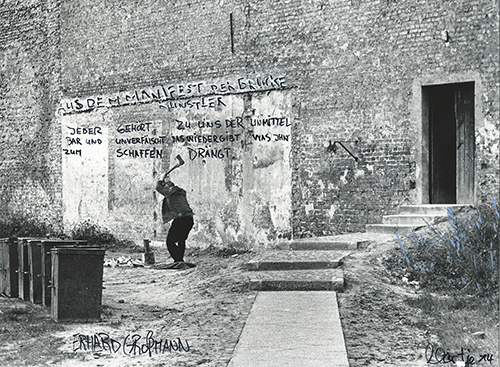 AUS DEM MANIFEST DER BRÜCKE
KÜNSTLER
JEDER GEHÖRT ZU UNS DER UNMITTEL
BAR UND UNVERFÄLSCHT DAS WIEDERGIBT WAS IHN
ZUM SCHAFFEN DRÄNGT.
ERHARD GROßMANN
74